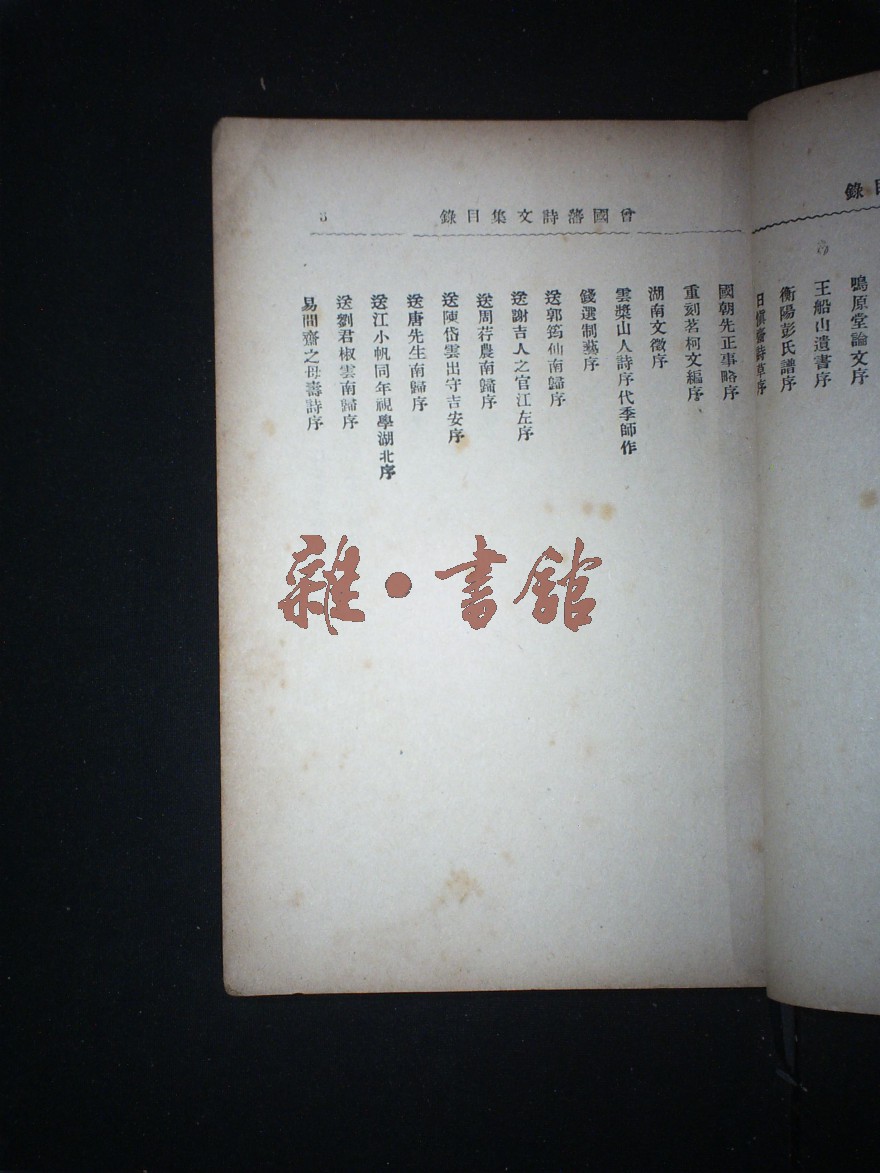 錄目
鳴原堂論文序
王船山遺書序
衡陽彭氏譜序
曾國藩詩文集目錄
3
國朝先正事略序
重刻茗柯文編序
湖南文徵序
雲槳山人詩序代季師作
錢選制藝序
送郭筠仙南歸序
送謝吉人之官江左序
送周荇農南歸序
送陳岱雲出守吉安序
送唐先生南歸序
送江小帆同年視學湖北序
送劉君椒雲南歸序
易問齋之母壽詩序
雜·書館